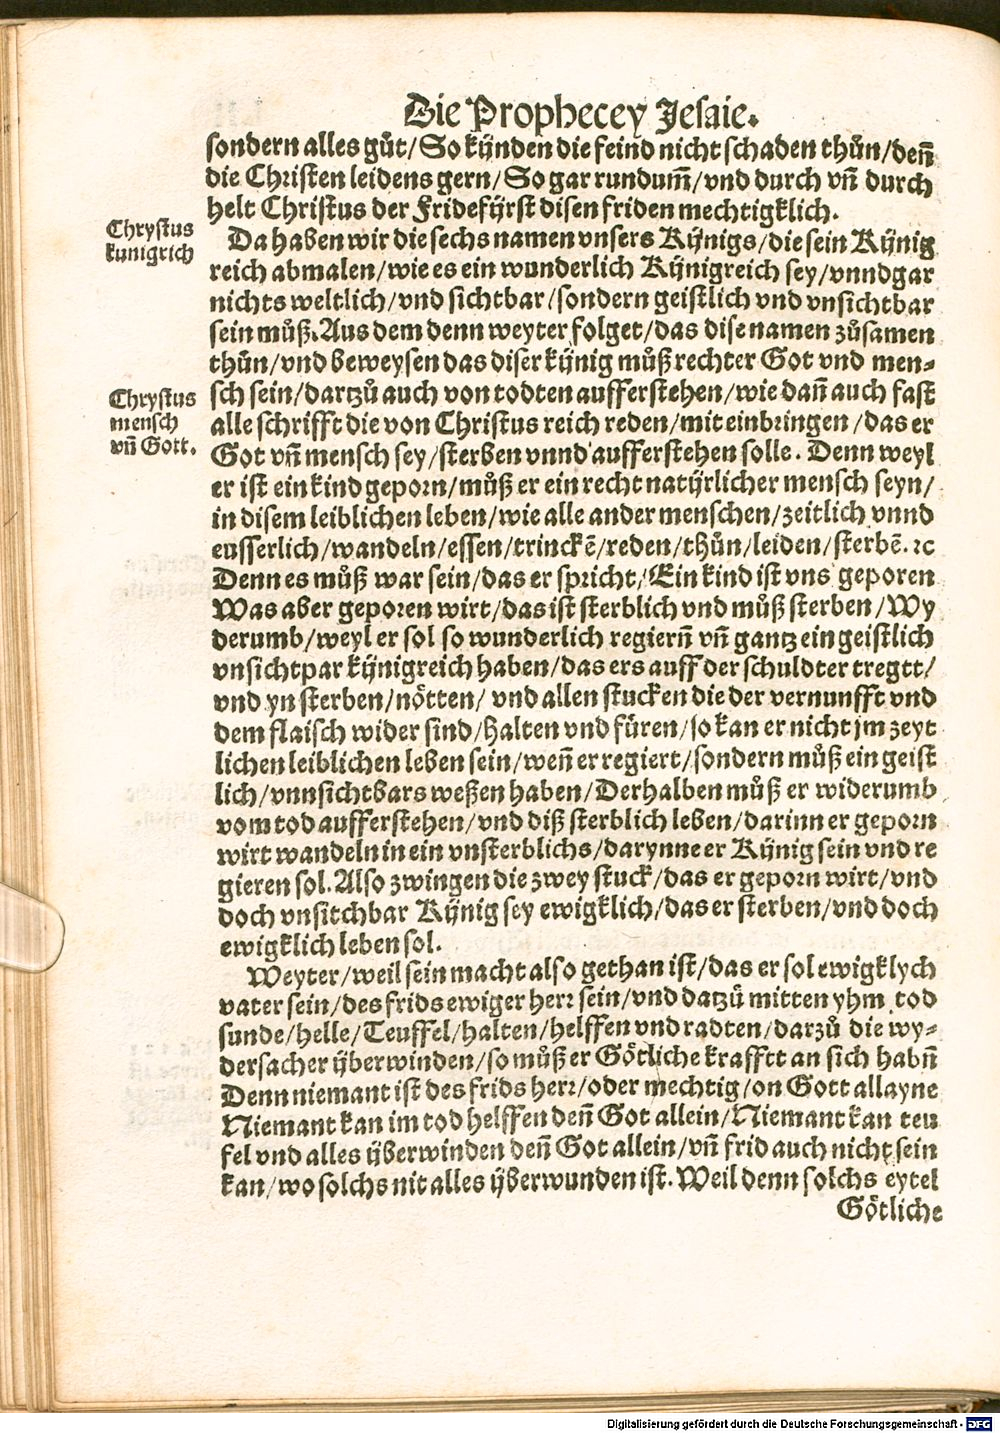 Die Prophecey Jesaie.
sondern alles gůt/So kỹnden die feind nicht schaden thůn/deñ
die Christen leidens gern/So gar rundum̃/vnd durch vñ durch
helt Christus der Fridefỹrst disen friden mechtigklich.
Chrystus
kunigrich
Da haben wir die sechs namen vnsers Kỹnigs/die sein Kỹnig
reich abmalen/wie es ein wunderlich Kỹnigreich sey/vnndgar
nichts weltlich/vnd sichtbar/sondern geistlich vnd vnsichtbar
sein můß.Aus dem denn weyter folget/das dise namen zůsamen
thůn/vnd beweysen das diser kỹnig můß rechter Got vnd men-
Chrystus
mensch
vñ Gott.
sch sein/dartzů auch von todten aufferstehen/wie dañ auch fast
alle schrifft die von Christus reich reden/mit einbringen/das er
Got vñ mensch sey/sterben vnnd aufferstehen solle. Denn weyl
er ist ein kind geporn/můß er ein recht natỹrlicher mensch seyn/
in disem leiblichen leben/wie alle ander menschen/zeitlich vnnd
eusserlich/wandeln/essen/trinckẽ/reden/thůn/leiden/sterbẽ.ꝛc
Denn es můß war sein/das er spricht/Ein kind ist vns geporen
Was aber geporen wirt/das ist sterblich vnd můß sterben/Wy
derumb/weyl er sol so wunderlich regierñ vñ gantz ein geistlich
vnsichtpar kỹnigreich haben/das ers auff der schuldter tregtt/
vnd yn sterben/nötten/ vnd allen stucken die der vernunfft vnd
dem flaisch wider sind/halten vnd füren/so kan er nicht jm zeyt
lichen leiblichen leben sein/weñ er regiert/sondern můß ein geist
lich/vnnsichtbars weßen haben/Derhalben můß er widerumb
vom tod aufferstehen/vnd diß sterblich leben/darinn er geporn
wirt wandeln in ein vnsterblichs/darynne er Kỹnig sein vnd re
gieren sol.Also zwingen die zwey stuck/das er geporn wirt/vnd
doch vnsitchbar Kỹnig sey ewigklich/das er sterben/vnd doch
ewigklich leben sol.
Weyter/weil sein macht also gethan ist/das er sol ewigklych
vater sein/des frids ewiger herr sein/vnd datzů mitten yhm tod
sunde/helle/Teuffel/halten/helffen vnd radten/darzů die wy-
dersacher ỹberwinden/so můß er Götliche krafftt an sich habñ
Denn niemant ist des frids herr/oder mechtig/on Gott allayne
Niemant kan im tod helffen deñ Got allein/Niemant kan teu
fel vnd alles ỹberwinden deñ Got allein/vñ frid auch nicht sein
kan/wo solchs nit alles ỹberwunden ist.Weil denn solchs eytel
Götliche
Digitalisierung gefördert durch die Deutsche Forschungsgemeinschaft - DFG